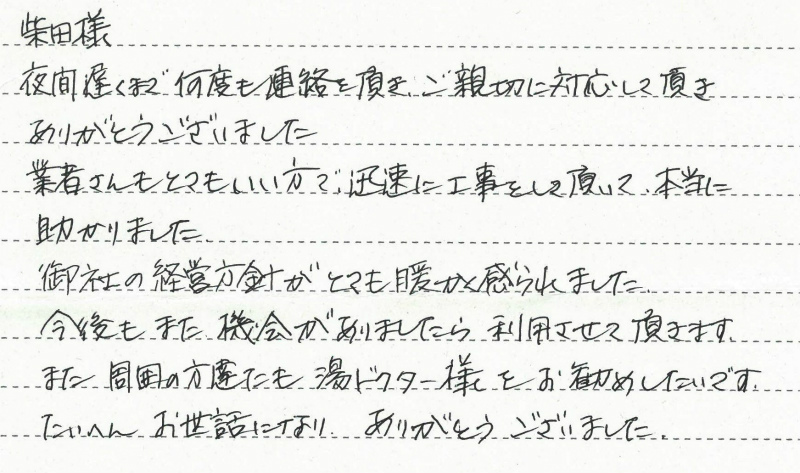 柴田様
夜間遅くまで何度も連絡を頂き、ご親切に対応して頂き
ありがとうございました
業者さんもとてもいい方で、迅速に工事をして頂いて、本当に
助かりました。
御社の経営方針がとても暖かく感られました。
今後もまた機会がありましたら利用させて頂きます。
また周囲の方達にも湯ドクター様をお勧めしたいです。
たいへんお世話になり、ありがとうございました。